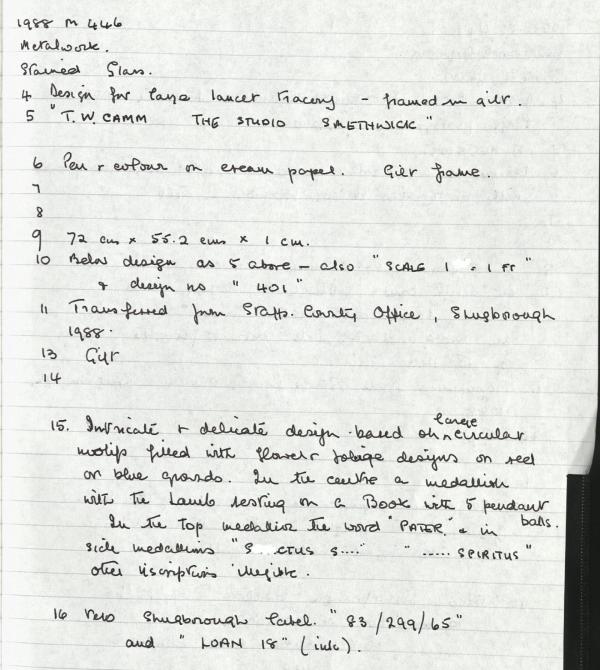 1988 M 446
Metalwork.
Stained Glass.
4 Design for large lancet tracery - framed in gilt.
5 "T.W. CAMM THE STUDIO SMETHWICK"
6 Pen & colour on cream paper. Gilt frame.
7
8
9 72 cms x 55.2 cms x 1 cm.
10 Below design as 5 above - also "SCALE 1 = 1 FT"
& design no "401"
11 Transferred from Staffs. County Office, Shugborough
1988.
13 Gift
14
15. Intricate & delicate design based on large circular
motifs filled with flower & foliage designs on red
or blue grounds. In the centre a medallion
with the Lamb resting on a Book with 5 pendant balls.
In the top medallion the word "PATER" & in
side medallions "S CTUS S...." "..... SPIRITUS"
other inscriptions illegible.
16 Shugborough label. "83/299/65"
and "LOAN 18" (ink).